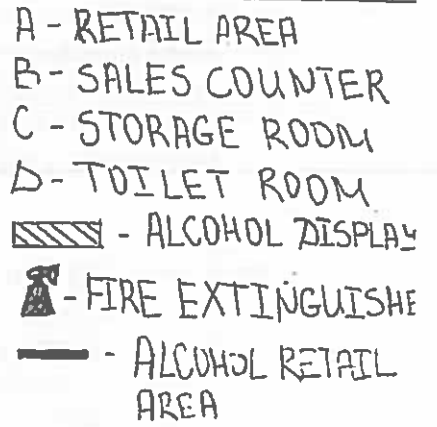 A - RETAIL AREA
B - SALES COUNTER
C - STORAGE ROOM
D - TOILET ROOM
- ALCOHOL DISPLAY
- FIRE EXTINGUISHE
- ALCOHOL RETAIL
AREA